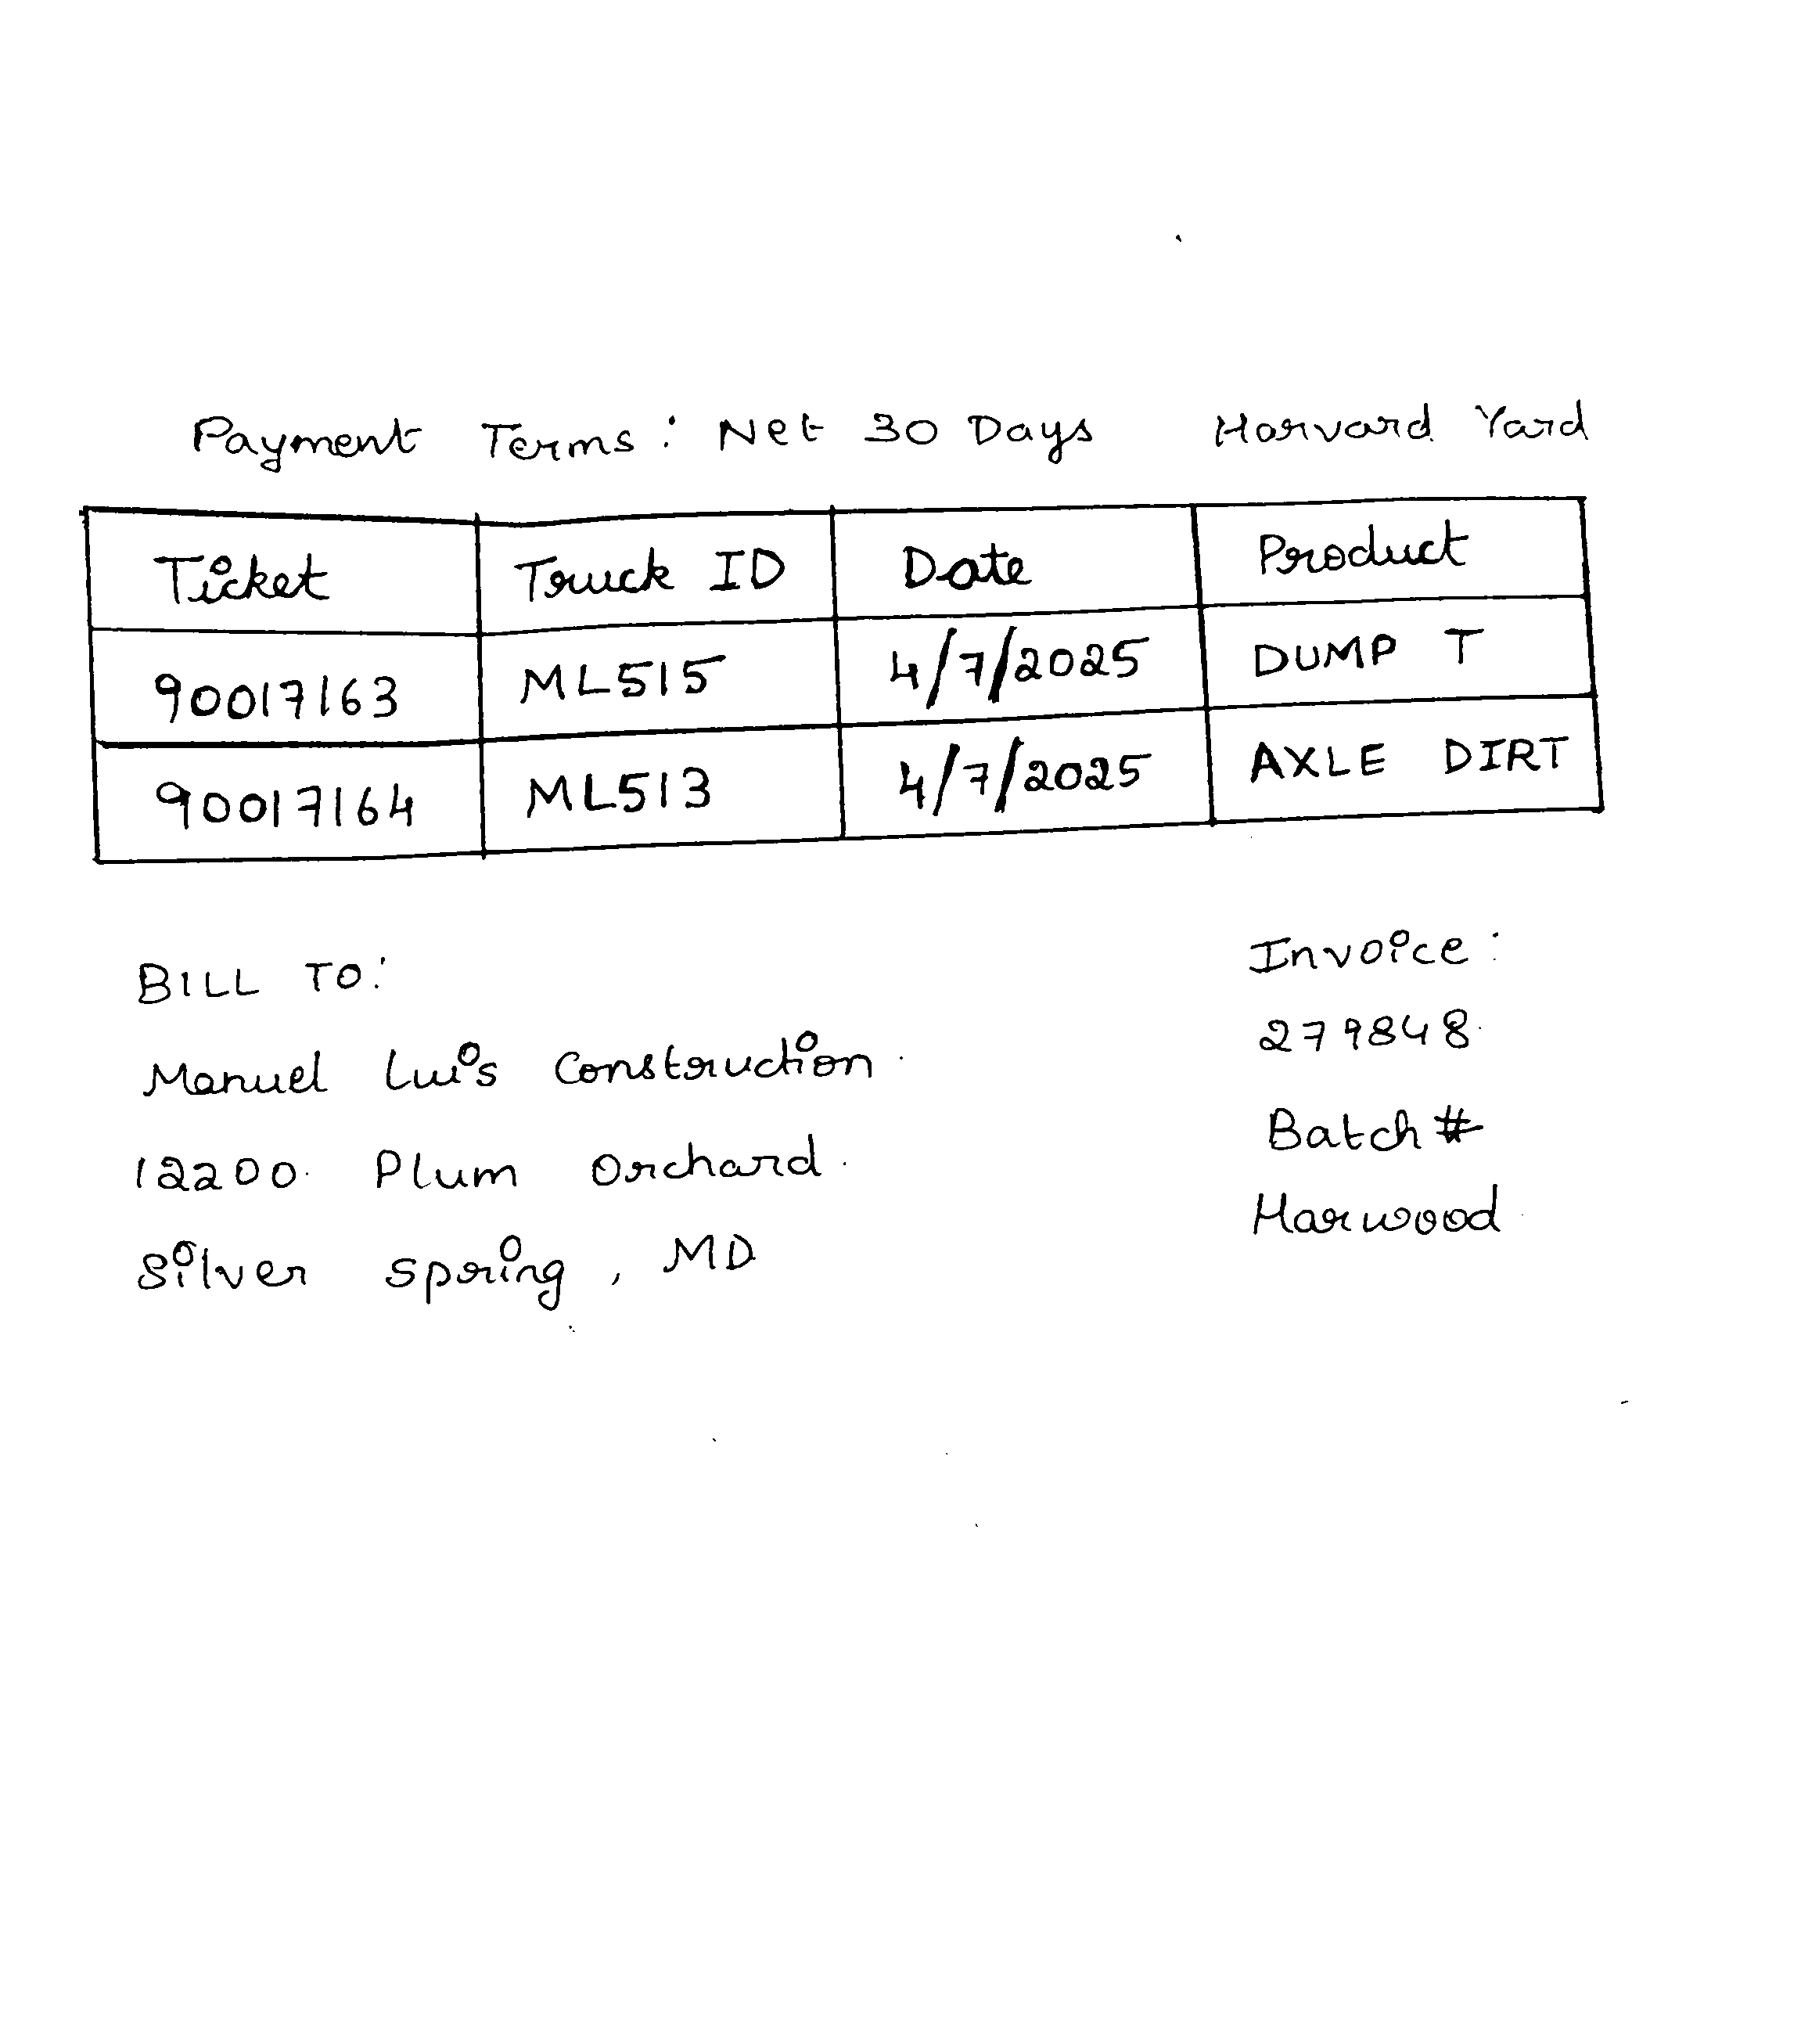 Payment Terms: Net 30 Days Harvard Yard
Ticket Truck ID Date Product
90017163 ML515 4/7/2025 DUMP T
90017164 ML513 4/7/2025 AXLE DIRT
BILL TO: Invoice:
Manuel Luis Construction 279848
12200 Plum Orchard Batch #
Silver Spring, MD Harwood